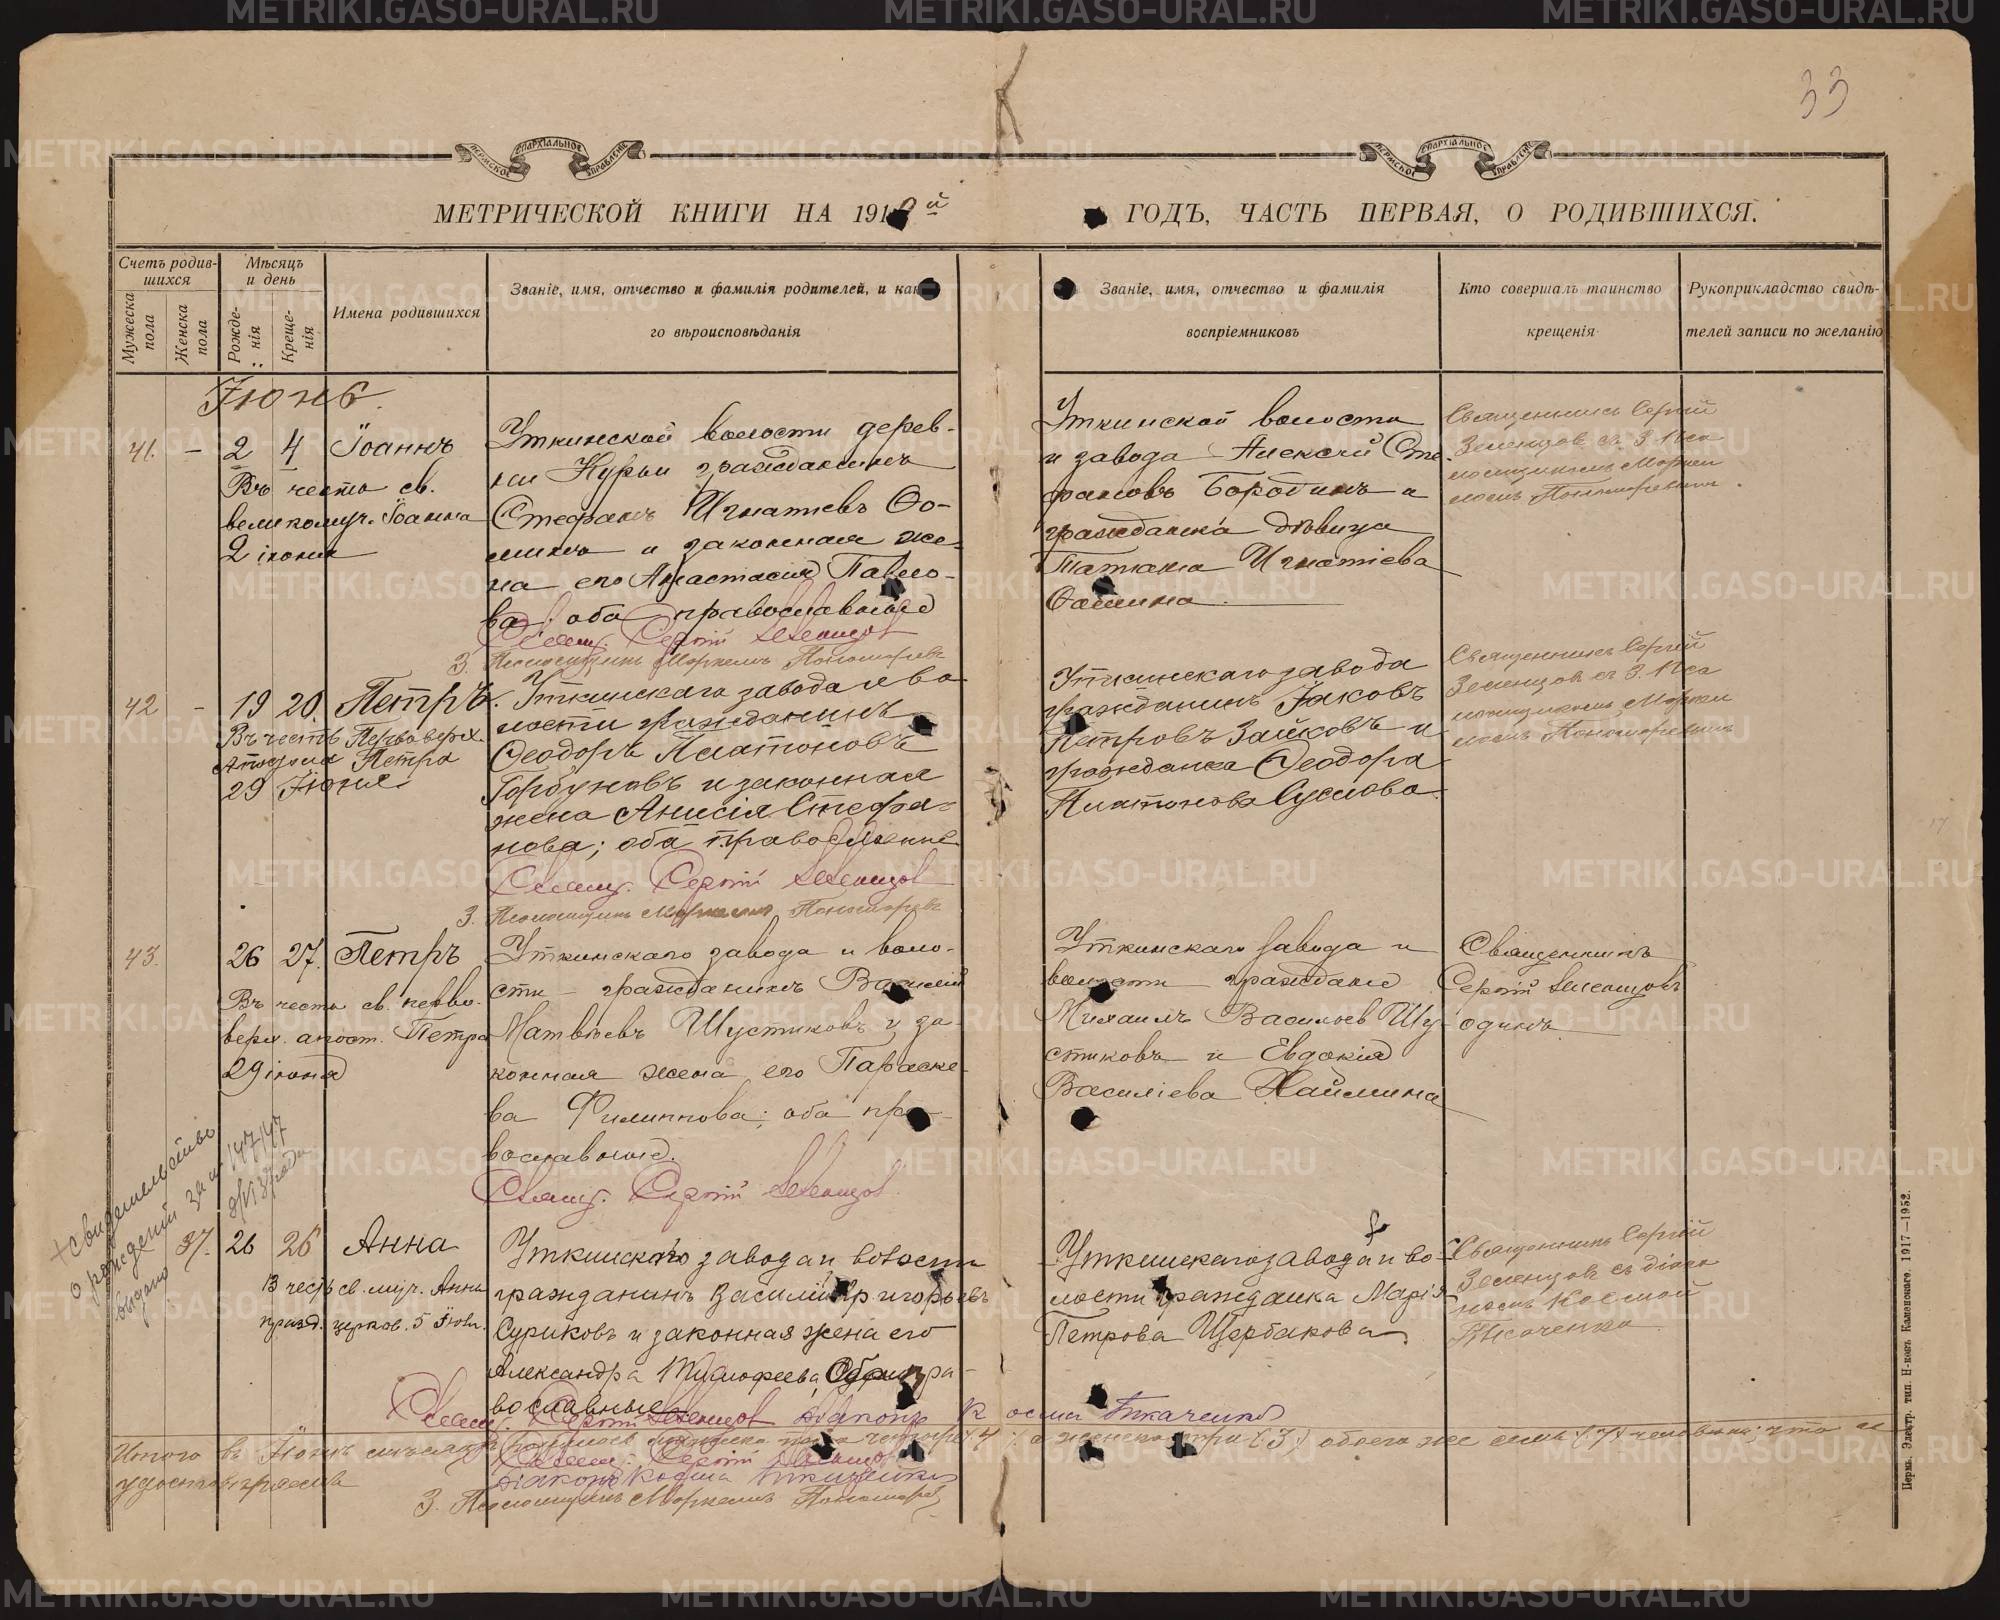 33
ПЕРМСКОЕ ЕПАРХІАЛЬНОЕ УПРАВЛЕНІЕ
ПЕРМСКОЕ ЕПАРХІАЛЬНОЕ УПРАВЛЕНІЕ
МЕТРИЧЕСКОЙ КНИГИ НА 191 й ГОДЪ, ЧАСТЬ ПЕРВАЯ, О РОДИВШИХСЯ.
Счетъ родив-
шихся
Мужеска пола
Женска пола
Мѣсяцъ
и день
Рожде-
нія
Креще-
нія
Имена родившихся
Званіе, имя, отчество и фамилія родителей, и како
го вѣроисповѣданія
Званіе, имя, отчество и фамилія
воспріемниковъ
Кто совершалъ таинство
крещенія
Рукоприкладство свидѣ-
телей записи по желанію
Іюнь.
41. - 2 4 Іоаннъ
Въ честь св.
великомуч. Іоанна
2 іюня
Уткинской волости дерев-
ни Курьи гражданинъ
Стефанъ Игнатіевъ Ѳо-
минъ и законная же-
на его Анастасія Павло-
ва; оба православные
Свящ. Сергій Зеленцов
З. Псаломщика Маркелъ Пономарев
Уткинской волости
и завода Алексѣй Сте-
фановъ Бородинъ и
гражданка дѣвица
Татіана Игнатіева
Ѳомина.
Священникъ Сергій
Зеленцов съ З. Пса
ломщикомъ Марке
ломъ Пономаревым.
42 - 19 20. Петръ.
Въ честь Первоверх.
Апостола Петра
29 Іюня
Уткинскаго завода и во
лости гражданинъ
Ѳеодоръ Платоновъ
Горбуновъ и законная
жена Анисія Стефа-
нова; оба православные.
Свящ. Сергій Зеленцов
З. Псаломщика Маркелъ Пономарев
Уткинскаго завода
гражданинъ Іаковъ
Петровъ Зайковъ и
гражданка Ѳеодора
Платонова Суслова.
Священникъ Сергій
Зеленцов съ З. Пса
ломщикомъ Марке
ломъ Пономаревым
43. 26 27. Петръ
Въ честь св. перво-
верх. апост. Петра
29 іюня
Уткинскаго завода и воло-
сти гражданинъ Василій
Матвѣевъ Шустиковъ и за-
конная жена его Параске-
ва Филиппова; оба пра-
вославные.
Свящ. Сергій Зеленцов.
Уткинскаго завода и
волости граждане
Михаилъ Васильев Шу-
стиковъ и Евдокія
Василіева
Священникъ
Сергій Зеленцовъ
одинъ
+ Свидетельство
о рождении за № 147/47
выдано
37. 26 26 Анна
В честь св. муч. Анны
празд. церков. 5 Іюл.
Уткинского завода и волости
гражданинъ Василій Григорьевъ
Суриковъ и законная жена его
Александра Тимофеева, Оба пра-
вославные
Свящ. Сергій Зеленцов діаконъ Косма Ткаченко
Уткинскаго завода и во-
лости гражданка Марія
Петрова Щербакова
Священникъ Сергій
Зеленцов съ діако
номъ Космой
Ткаченко
Итого въ Іюнѣ мѣсяцѣ родилось мужеска пола четыре (4) а женска три (3) обоего же семь (7) человѣкъ; что и
удостовѣряемъ
Свящ. Сергій Зеленцов
діаконъ Косма Ткаченко
З. Псаломщика Маркелъ Пономарев
Пермь. Электр. тип. Н-ковъ Каменскаго. 1917—1952.
METRIKI.GASO-URAL.RU